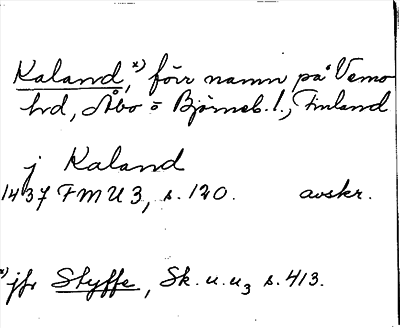 Kaland,*) förr namn på Vemo
hrd, Åbo o Björneb. l., Finland
j Kaland
1437 FMU 3, s. 120. avskr.
*) jfr Styffe, Sk. u. u3 s. 413.